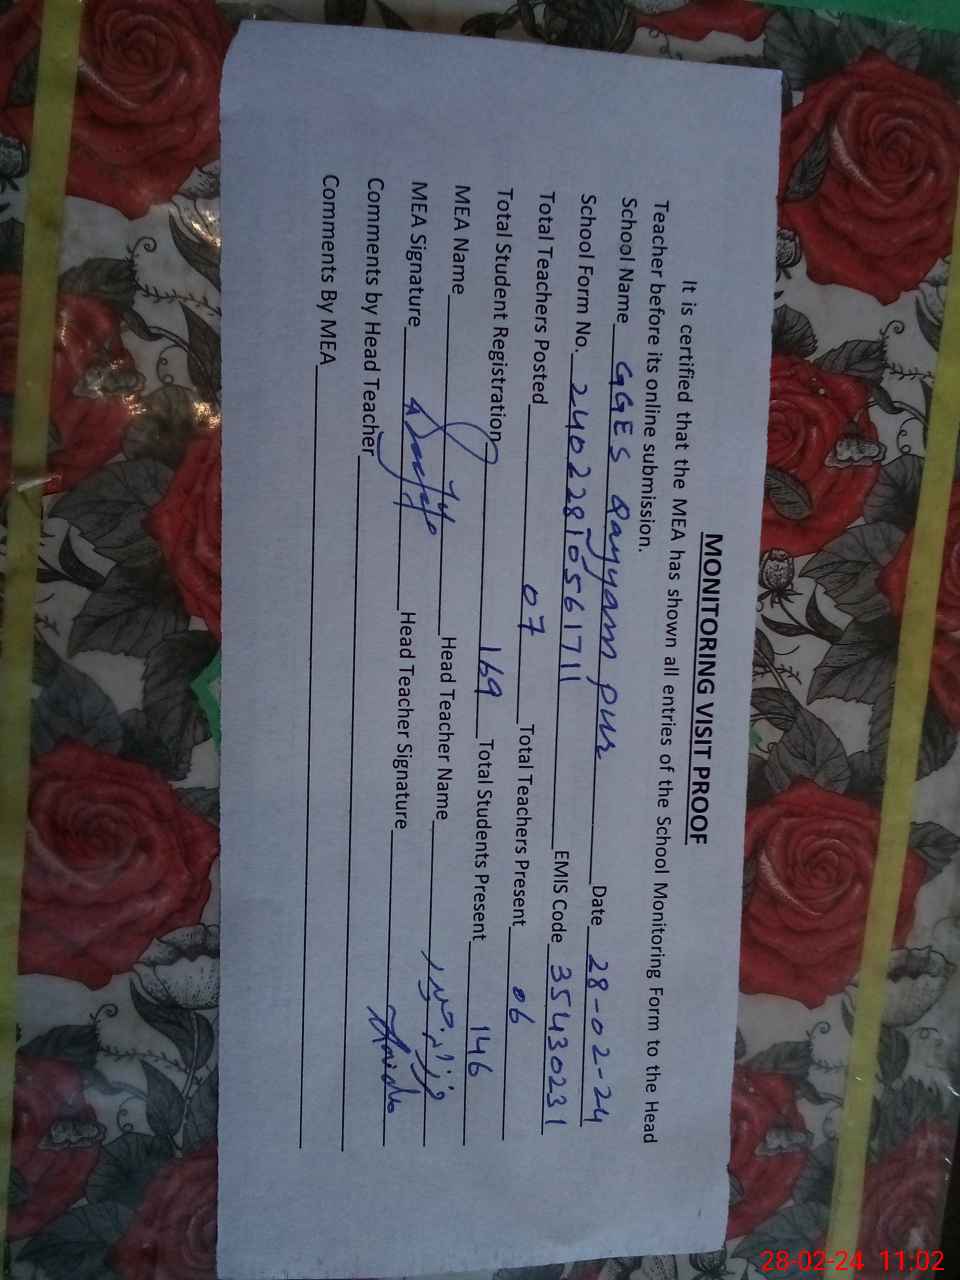 MONITORING VISIT PROOF
It is certified that the MEA has shown all entries of the School Monitoring Form to the Head
Teacher before its online submission.
School Name GGES Qayyam pur Date 28-02-24
School Form No. 24022810561711 EMIS Code 35430231
Total Teachers Posted 07 Total Teachers Present 06
Total Student Registration 169 Total Students Present 146
MEA Name Head Teacher Name
MEA Signature Head Teacher Signature
Comments by Head Teacher
Comments By MEA
28-02-24 11:02